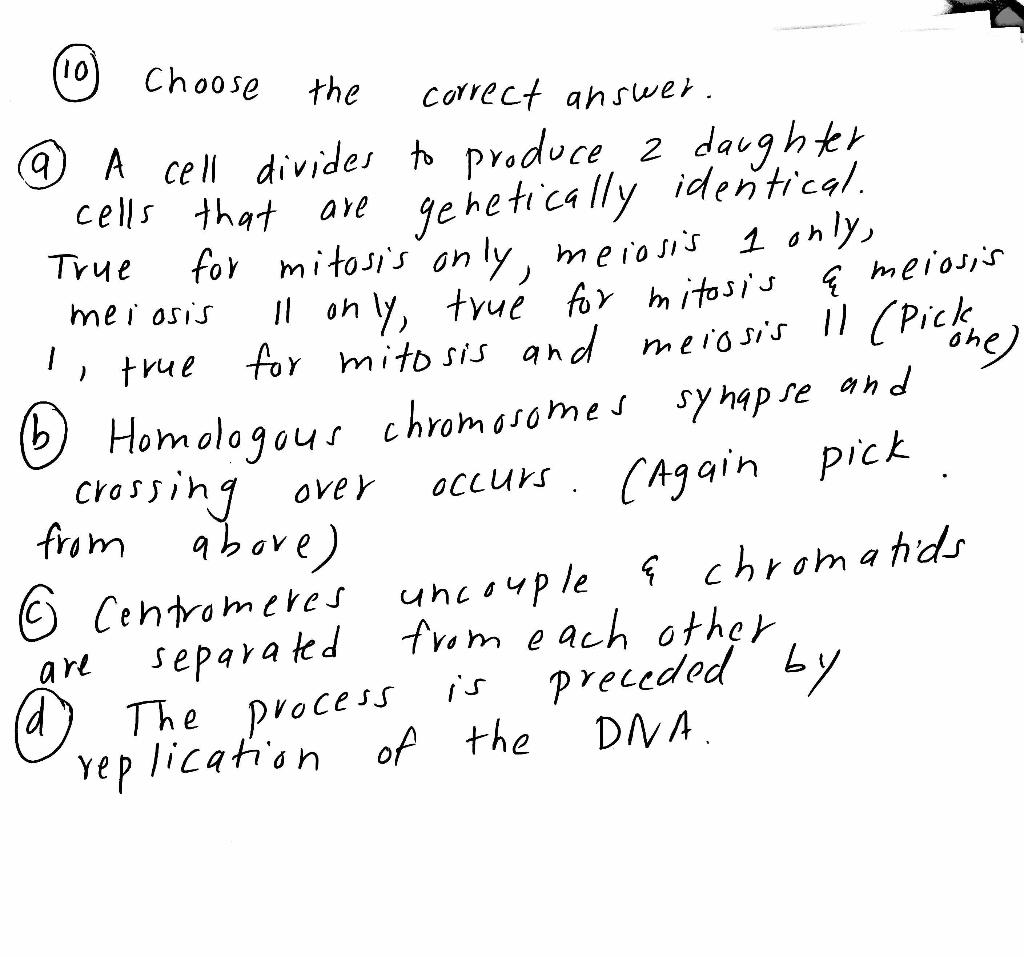 10 Choose the correct answer.
a A cell divides to produce 2 daughter
cells that are genetically identical.
True for mitosis only, meiosis 1 only,
meiosis II only, true for mitosis & meiosis
I, true for mitosis and meiosis II (Pick one)
b Homologous chromosomes synapse and
crossing over occurs. (Again pick
from above)
c Centromeres uncouple & chromatids
are separated from each other
d The process is preceded by
replication of the DNA.